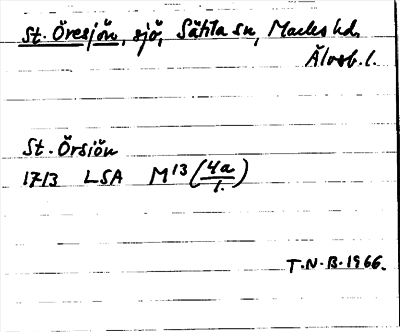 St. Öresjön, sjö, Sätila sn, Marks hd.
Älvsb. l.
St. Örsiön
1713 LSA M13 (4a/1.)
T.N.B. 1966.